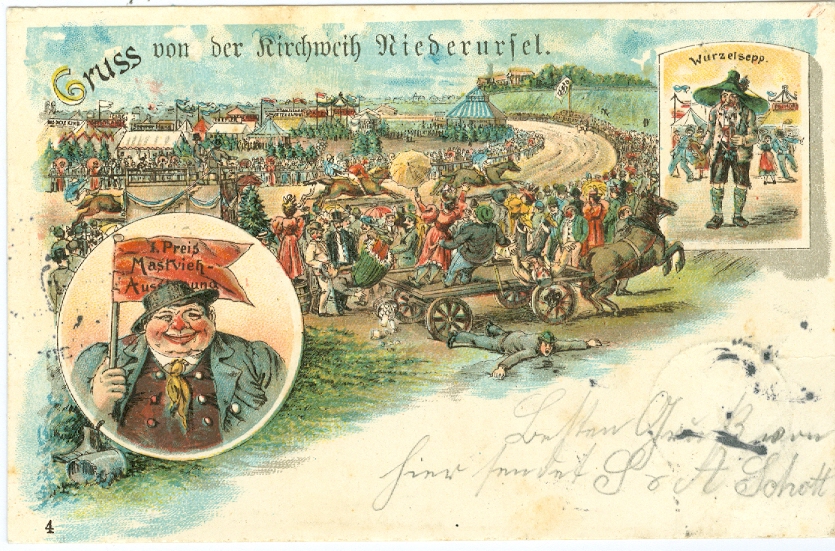 Gruss von der Kirchweih Niederursel.
Wurzelsepp.
1. Preis
Mastvieh-
Ausstellung
Besten Gruß von
hier sendet S A Schott
4